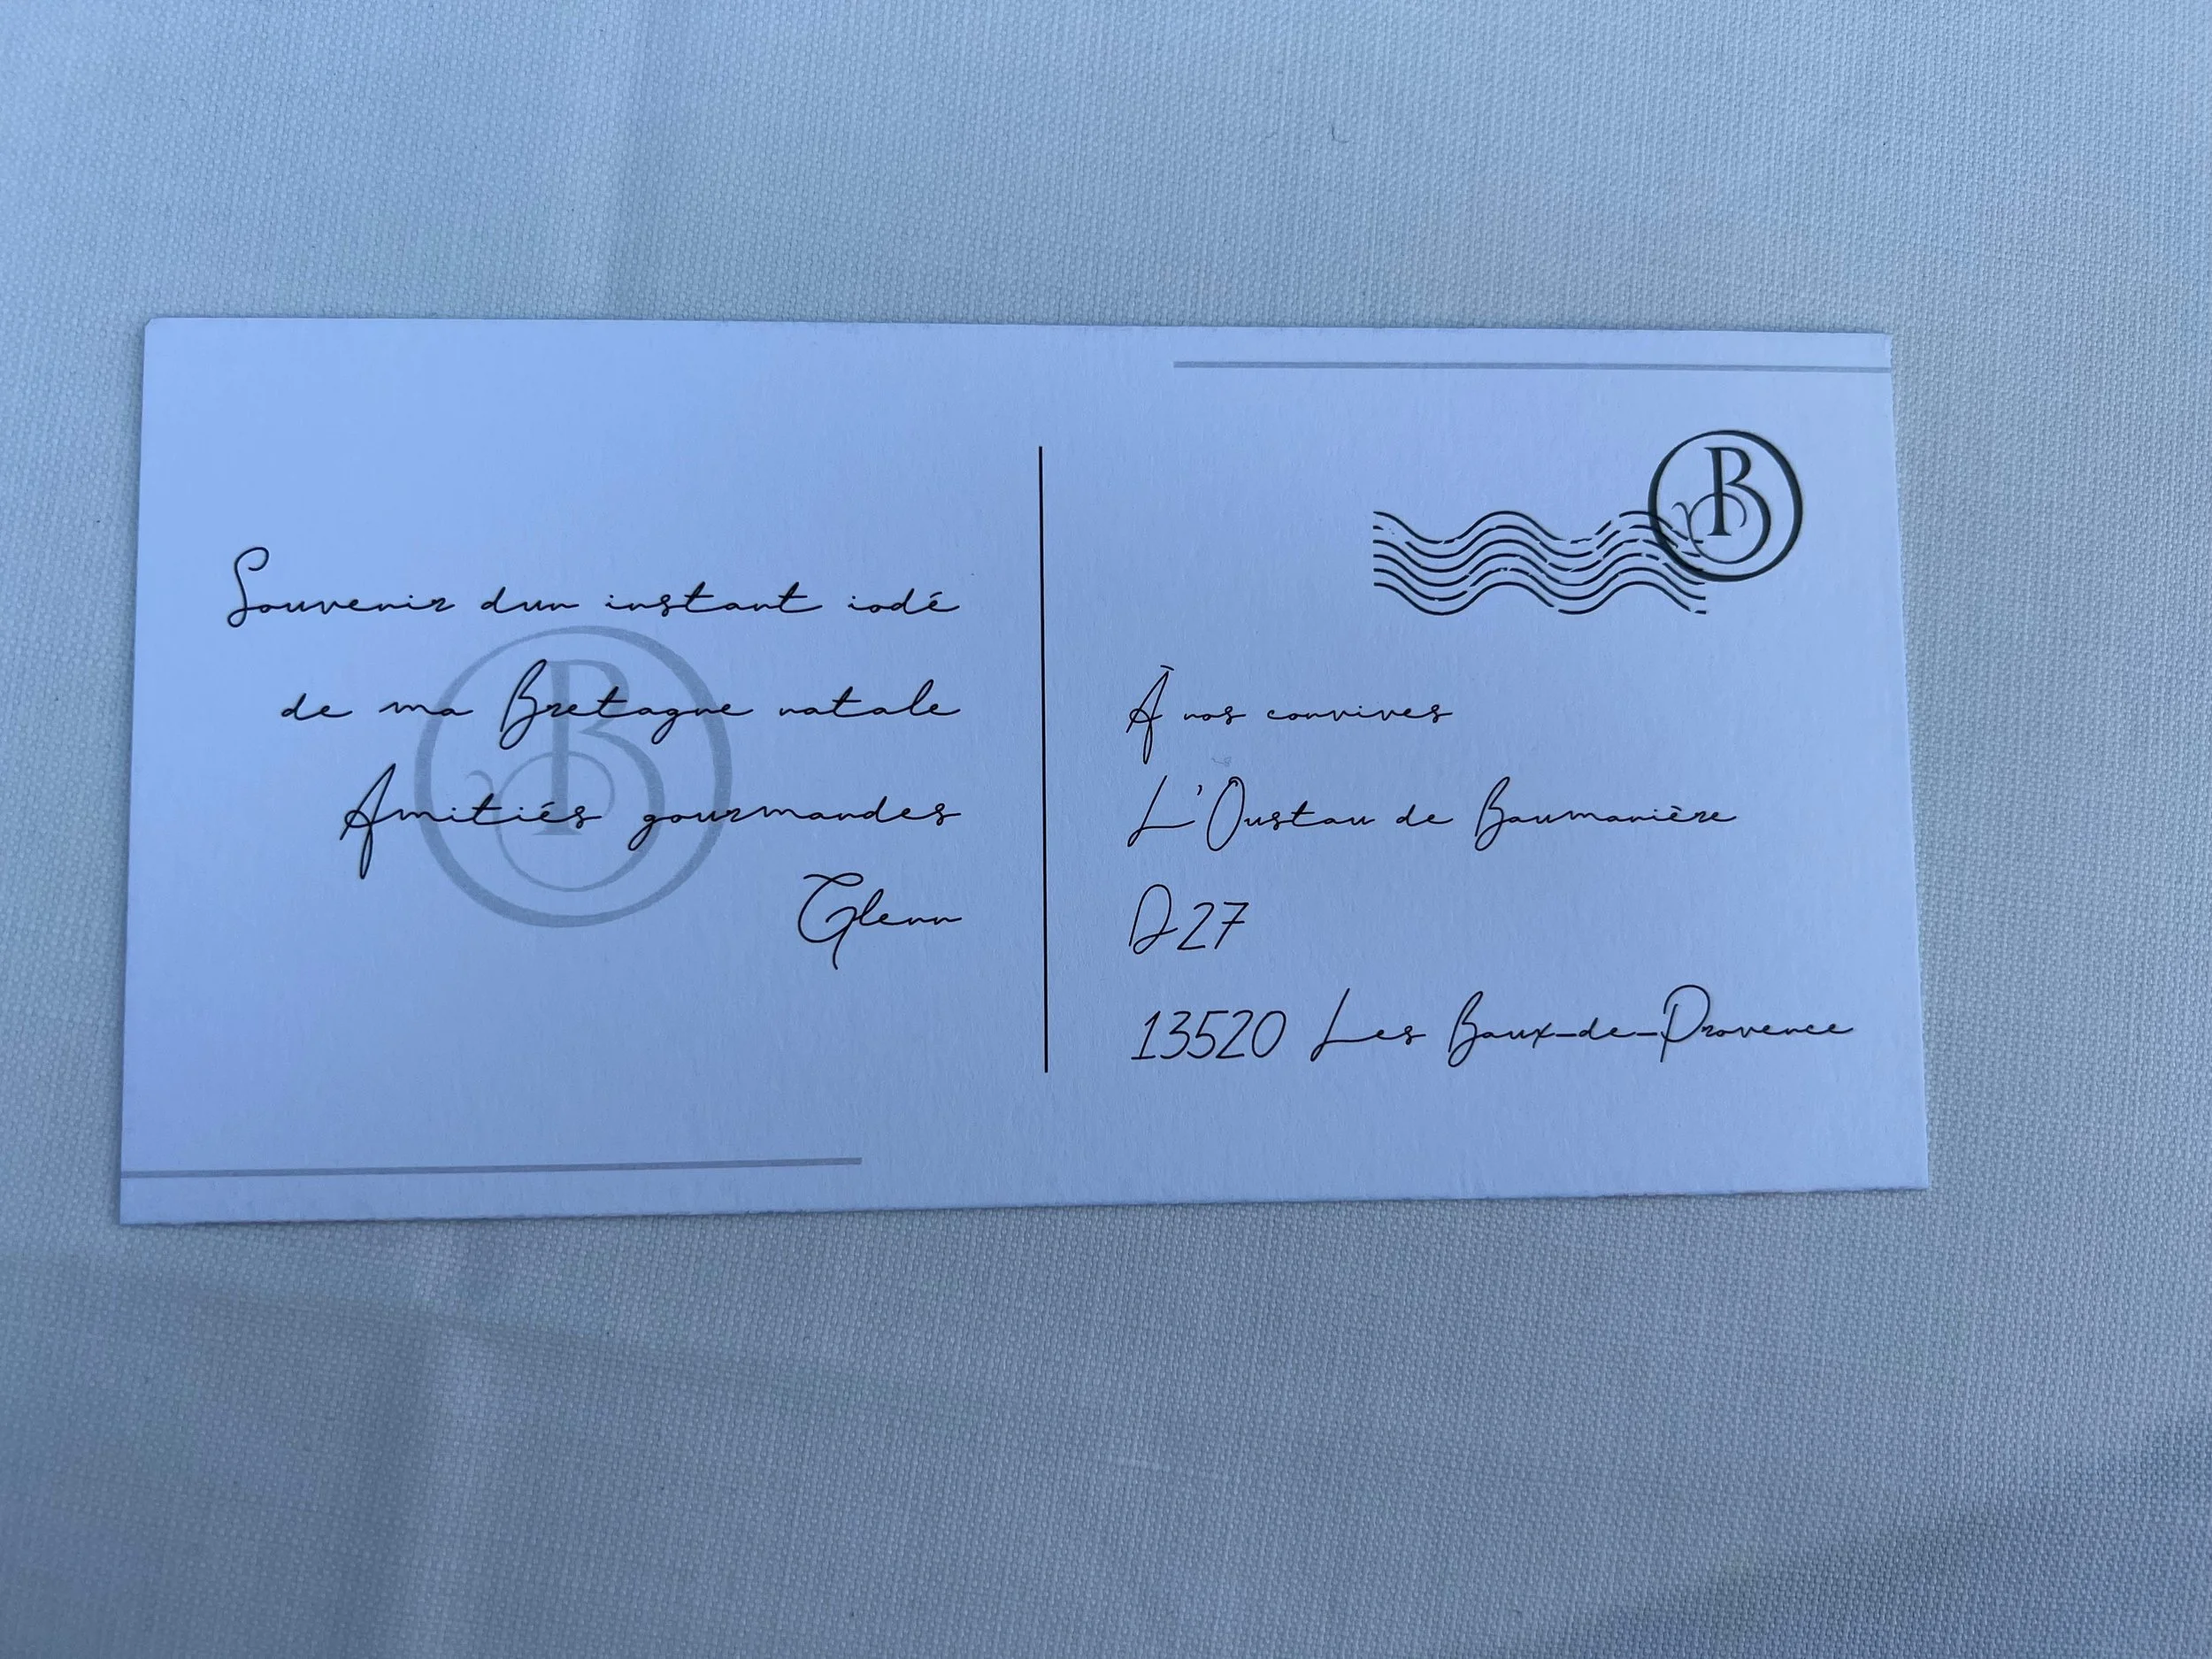 Souvenir dun instant iodé
de ma Bretagne natale
Amitiés gourmandes
Glenn
B
B
À nos convives
L'Oustau de Baumanière
D27
13520 Les Baux-de-Provence